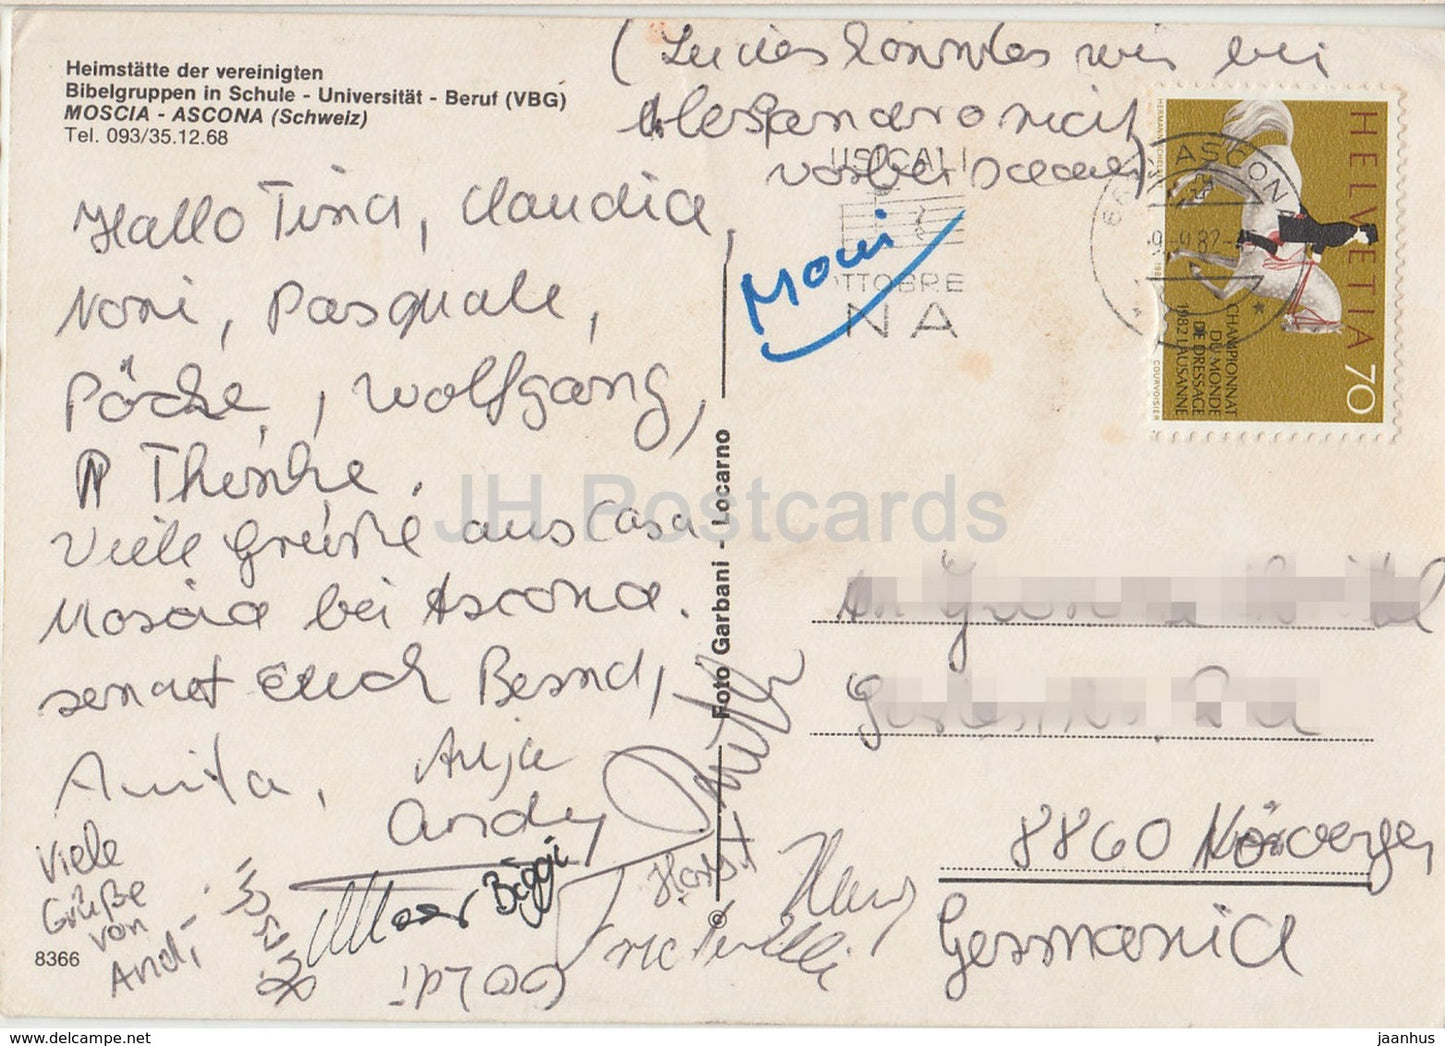 Heimstätte der vereinigten
Bibelgruppen in Schule - Universität - Beruf (VBG)
MOSCIA - ASCONA (Schweiz)
Tel. 093/35.12.68
(Leider konnten wir bei
Alessandro nicht
vorbei
Hallo Tina, Claudia,
Noni, Pasquale,
Pöcke, Wolfgang,
Thenke.
Viele Grüße aus Casa
Moscia bei Ascona.
sendet Euch Bernd,
Anita, Anja
Andy
Viele
Grüße
von
Andi
Biggi
Horst
Hans
Goldi
Moni
8366
Foto Garbani - Locarno
USICALI
OTTOBRE
NA
ASCONA
9.-9.82
HELVETIA 70
CHAMPIONNAT
DU MONDE
DE DRESSAGE
1982 LAUSANNE
COURVOISIER
JH Postcards
An
8860 Nördlingen
Germania
jaanhus
https://jhpostcards.com